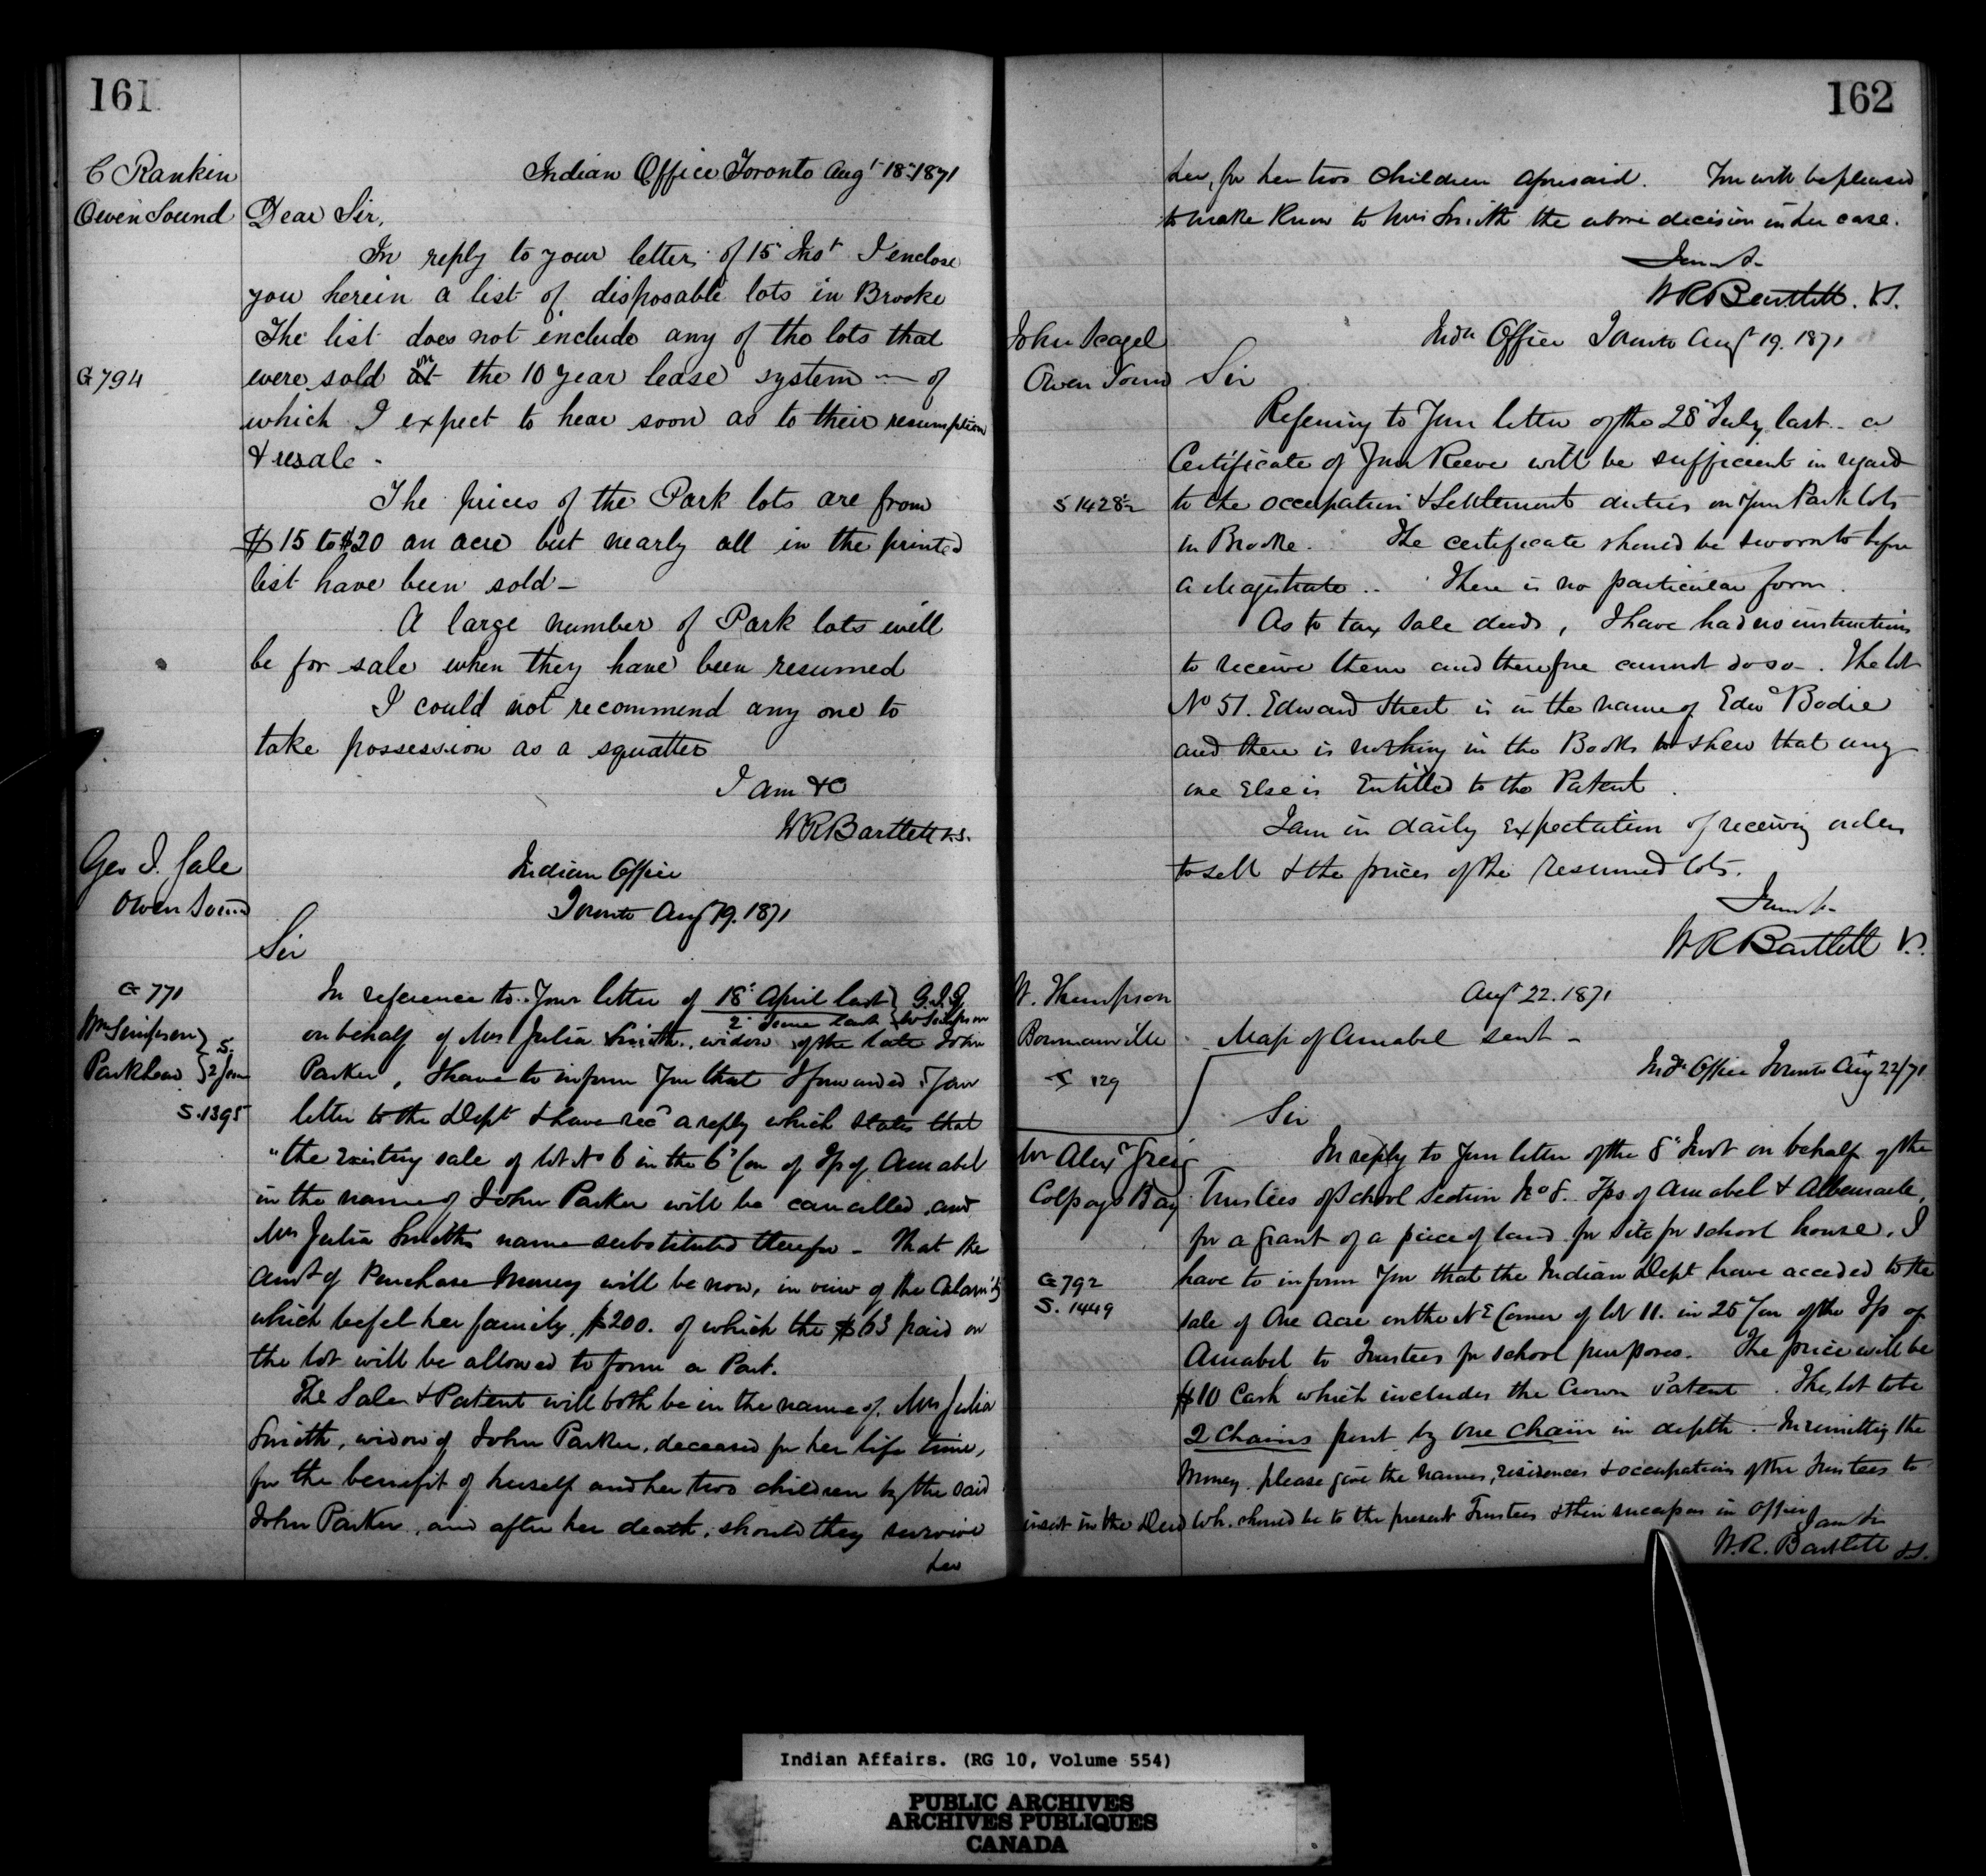 161
C Rankin
Owen Sound
Indian Office Toronto Augt 18th 1871
Dear Sir,
In reply to your letter of 15 Inst I enclose
you herein a list of disposable lots in Brooke
The list does not include any of the lots that
G 794
were sold on the 10 year lease system — of
which I expect to hear soon as to their resumption
& resale -
The prices of the Park lots are from
$15 to $20 an acre but nearly all in the printed
list have been sold —
A large number of Park lots will
be for sale when they have been resumed
I could not recommend any one to
take possession as a squatter
I am &c
W R Bartlett V.S.
Geo J. Gale
Owen Sound
Indian Office
Toronto Augt 19. 1871
Sir
G 771
Wm Simpson
Parkhead
2 June
S. 1395
In reference to your letter of 18th April last G.J.G
2 June last Wm Simpson
on behalf of Mrs Julia Smith, widow of the late John
Parker, I have to inform you that I forwarded your
letter to the Dept & have recd a reply which states that
"the existing sale of lot No 6 in the 6th Con of Tp of Amabel
in the name of John Parker will be cancelled, and
Mrs Julia Smiths name substituted therefor - That the
amt of Purchase Money will be now, in view of the calamity
which befel her family, $200. of which the $63 paid on
the lot will be allowed to form a Part.
The Sale & Patent will both be in the name of Mrs Julia
Smith, widow of John Parker, deceased for her life time,
for the benefit of herself and her two children by the said
John Parker, and after her death, should they survive
her
162
her, for her two children aforesaid. You will be pleased
to make know to Mrs Smith the above decision in her case.
I am &c
W R Bartlett. V.S.
John Seagel
Owen Sound
Indn Office Toronto Augt 19. 1871
Sir
Referring to your letter of the 28th July last - a
Certificate of your Reeve will be sufficient in regard
S 1428½
to the occupation & Settlement duties on your Park lots
in Brooke. The certificate should be sworn to before
a Magistrate.. There is no particular form.
As to tax sale deeds, I have had no instructions
to receive them and therefore cannot do so -. The lot
No 51. Edward Street is in the name of Edwd Bodie
and there is nothing in the Books to shew that any
one Else is Entitled to the Patent.
I am in daily Expectation of receiving orders
to sell & the prices of the resumed lots.
I am &c
W R Bartlett V.S.
W. Thompson
Bowmanville
129
Augt 22. 1871
Map of Amabel sent -
Indn Office Toronto Augt 22/71
Sir
Mr Alexr Greig
Colpoys Bay
In reply to your letter of the 8th Inst on behalf of the
Trustees of School Section No 8. Tps of Amabel & Albemarle,
for a grant of a piece of land for site for school house, I
G 792
S. 1449
have to inform you that the Indian Dept have acceded to the
sale of One Acre on the NE Corner of lot 11. in 25 Con of the Tp of
Amabel to Trustees for school purposes. The price will be
$10 Cash which includes the Crown Patent. The lot to be
2 Chains front by one chain in depth. In remitting the
money please give the names, residences & occupations of the Trustees to
insert in the Deed wh. should be to the present Trustees & their successors in office
I am Sir
W. R. Bartlett V.S.
Indian Affairs. (RG 10, Volume 554)
PUBLIC ARCHIVES
ARCHIVES PUBLIQUES
CANADA